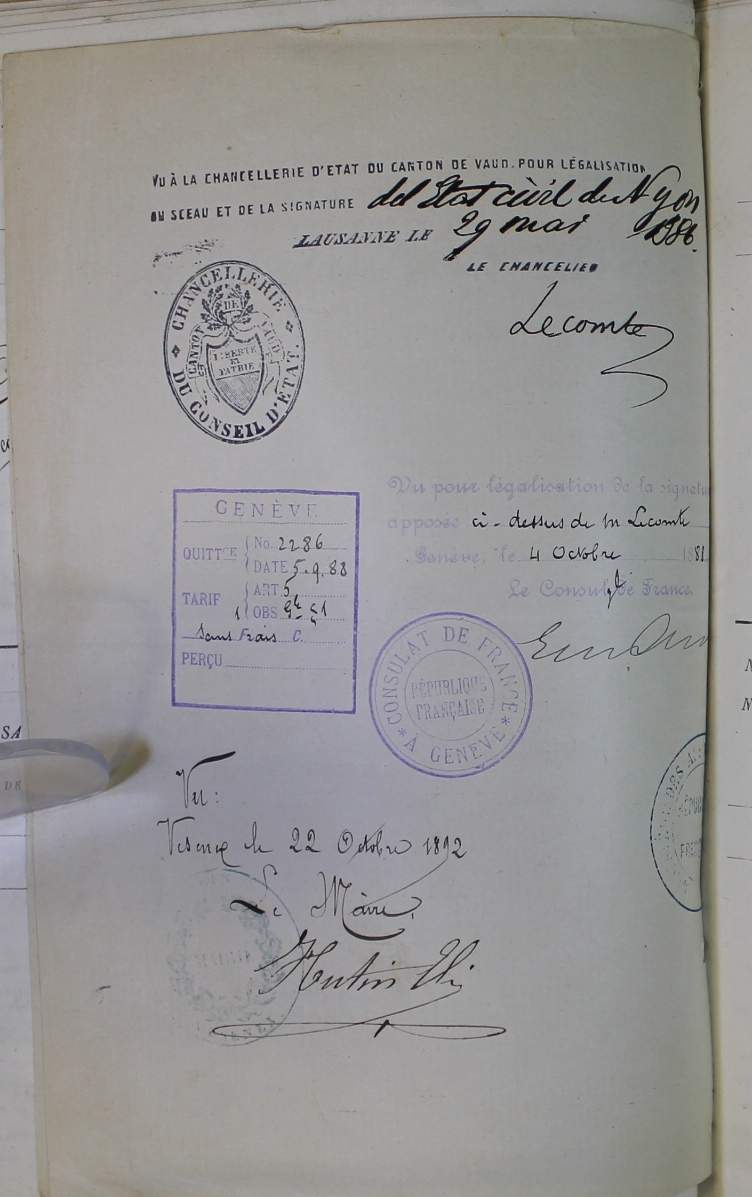 VU À LA CHANCELLERIE D'ETAT DU CANTON DE VAUD. POUR LÉGALISATION
DU SCEAU ET DE LA SIGNATURE del Etat civil de Nyon
LAUSANNE LE 29 mai 1886.
LE CHANCELIER
Lecomte
CHANCELLERIE DU CONSEIL D'ETAT
CANTON DE VAUD
LIBERTÉ ET PATRIE
Vu pour légalisation de la signatu
apposée ci-dessus de M Lecomte
Genève, le 4 Octobre 188
Le Consul de France.
GENÈVE
QUITTCE No. 2286
DATE 5.9.88
TARIF ART 5
OBS
Sans Frais
PERÇU
CONSULAT DE FRANCE
À GENÈVE
RÉPUBLIQUE FRANÇAISE
Vu:
le 22 Octobre 1892
Le Maire,
Hutin